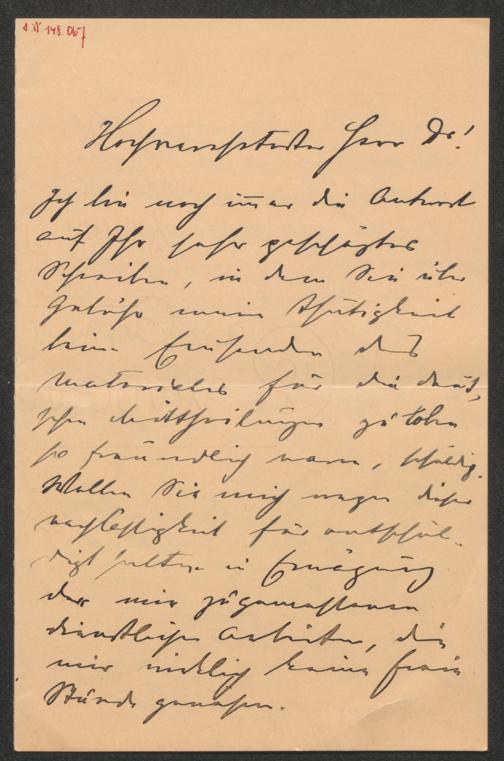 Hochverehrtester Herr Dr!
Ich bin noch im̄er die Antwort
auf Ihr sehr geschätztes
Schreiben, in dem Sie über
Gebühr meine Thätigkeit
beim Einsenden des
Materiales für die deut-
schen Mittheilungen zu loben
so freundlich waren, schuldig.
Wollen Sie mich wegen dieser
Nachlässigkeit für entschul-
digt halten in Erwägung
der mir zugemessenen
dienstlichen Arbeiten, die
mir wirklich keine freie
Stunde gewähren.